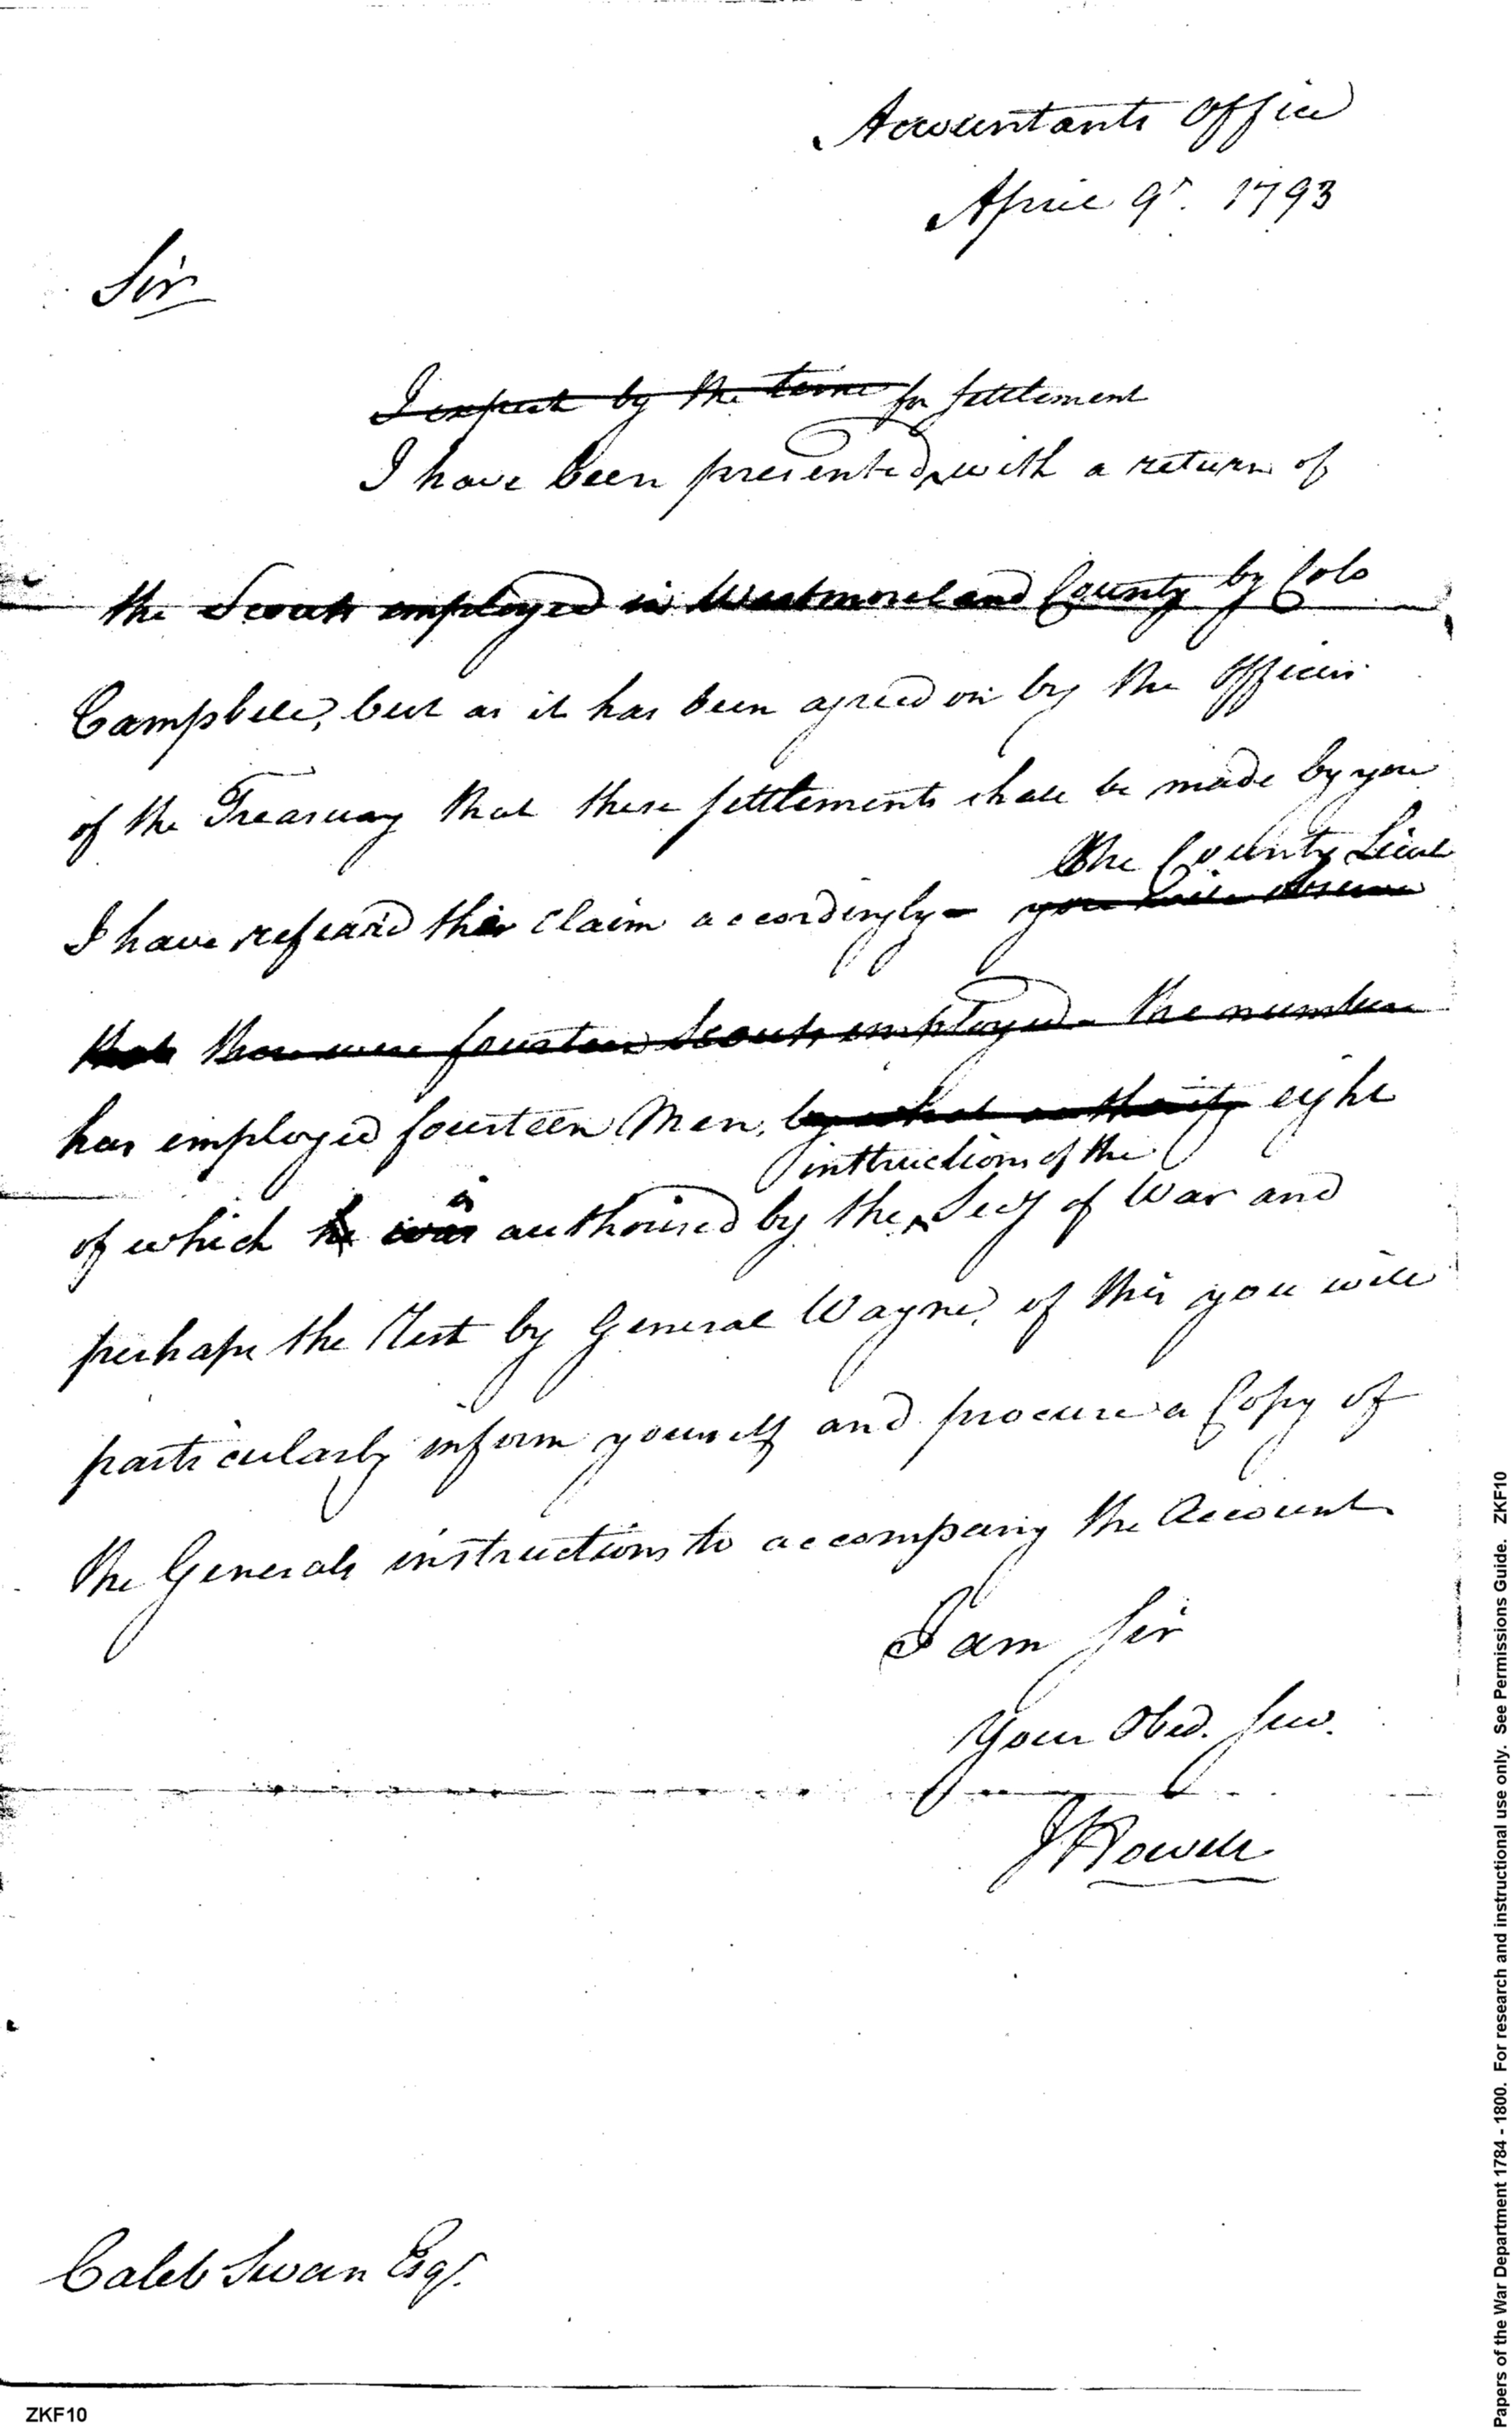 Accountants Office
April 9th. 1793
Sir
I expect by the time for settlement
I have been presented with a return of
the Scouts employed in Westmoreland County by Colo
Campbell, but as it has been agreed on by the Officers
of the Treasury that these settlements shall be made by you
the County Lieut
I have refeard this claim accordingly - you will observe
that there were fourteen Scouts employed - the number
has employed fourteen Men, by what authority eight
instructions of the
of which he was is authorised by the Secy of War and
perhaps the Rest by General Wayne, of this you will
particularly inform yourself and procure a Copy of
the Generals instructions to accompany the Account
I am Sir
Your Obed. Serv.
J Howell
Caleb Swan Esqr.
ZKF10
Papers of the War Department 1784 - 1800. For research and instructional use only. See Permissions Guide. ZKF10